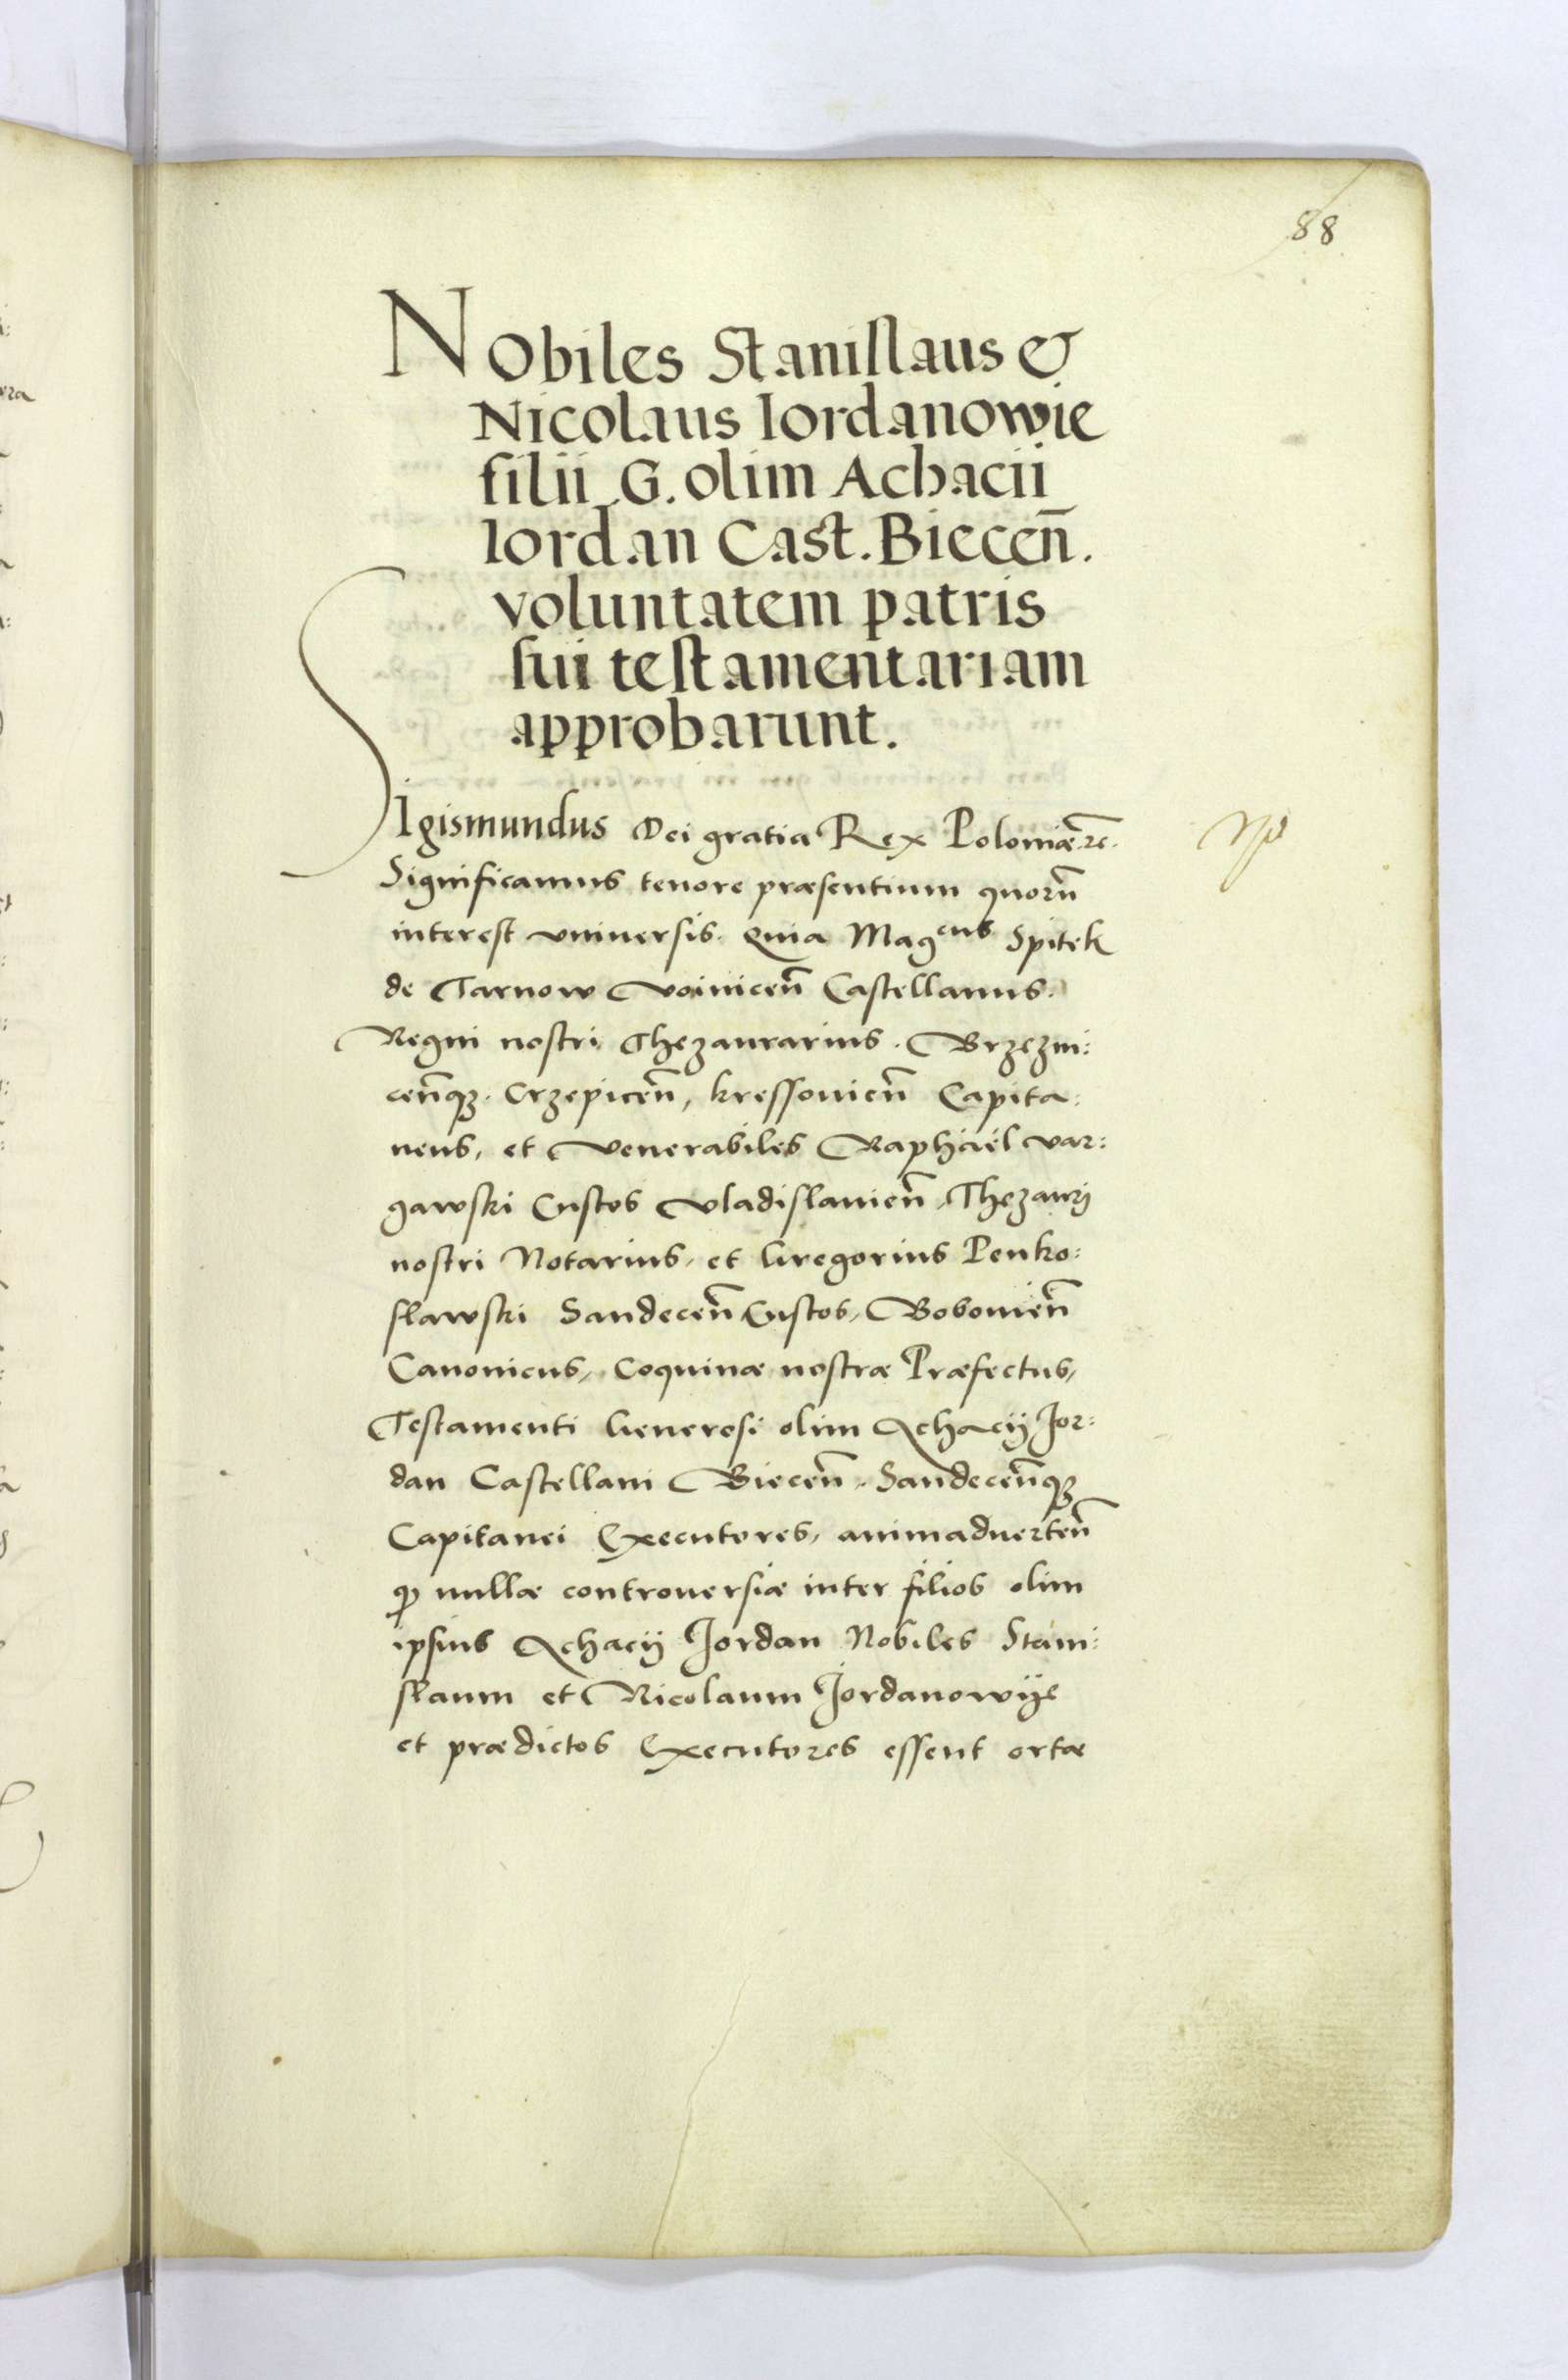 88
Nobiles Stanislaus &
Nicolaus Iordanowie
filii G. olim Achacii
Iordan Cast. Biecen̄.
voluntatem patris
sui testamentariam
approbarunt.
Sigismundus Dei gratia Rex Poloniæ ꝛc.
Significamus tenore præsentium quorū
interest vniuersis. Quia Mag^cus Spitek
de Tarnow Voinicen̄ Castellanus.
Regni nostri Thezaurarius. Brzezni:
cen̄qꝫ. Crzepicen̄, kressouien̄ Capita:
neus, et Venerabiles Raphaël Var:
gawski Custos Vladislauien̄, Thezauri
nostri Notarius, et Gregorius Penko:
slawski Sandecen̄ Custos, Bobouien̄
Canonicus, Coquinæ nostræ Præfectus,
Testamenti Generosi olim Achacij Jor:
dan Castellani Biecen̄, Sandecen̄qꝫ
Capitanei Executores, animaduerten̄
ꝙ nullæ controuersiæ inter filios olim
ipsius Achacij Jordan Nobiles Stani:
slaum et Nicolaum Jordanowije
et prædictos Executores essent ortæ